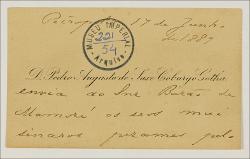 17 de Junho
de 1889
MUSEU IMPERIAL
221
54
Arquivo
D. Pedro Augusto de Saxe Coburgo Gotha
envia ao Snr Barão de
Mamoré os seos mui
sinceros pezames pelo